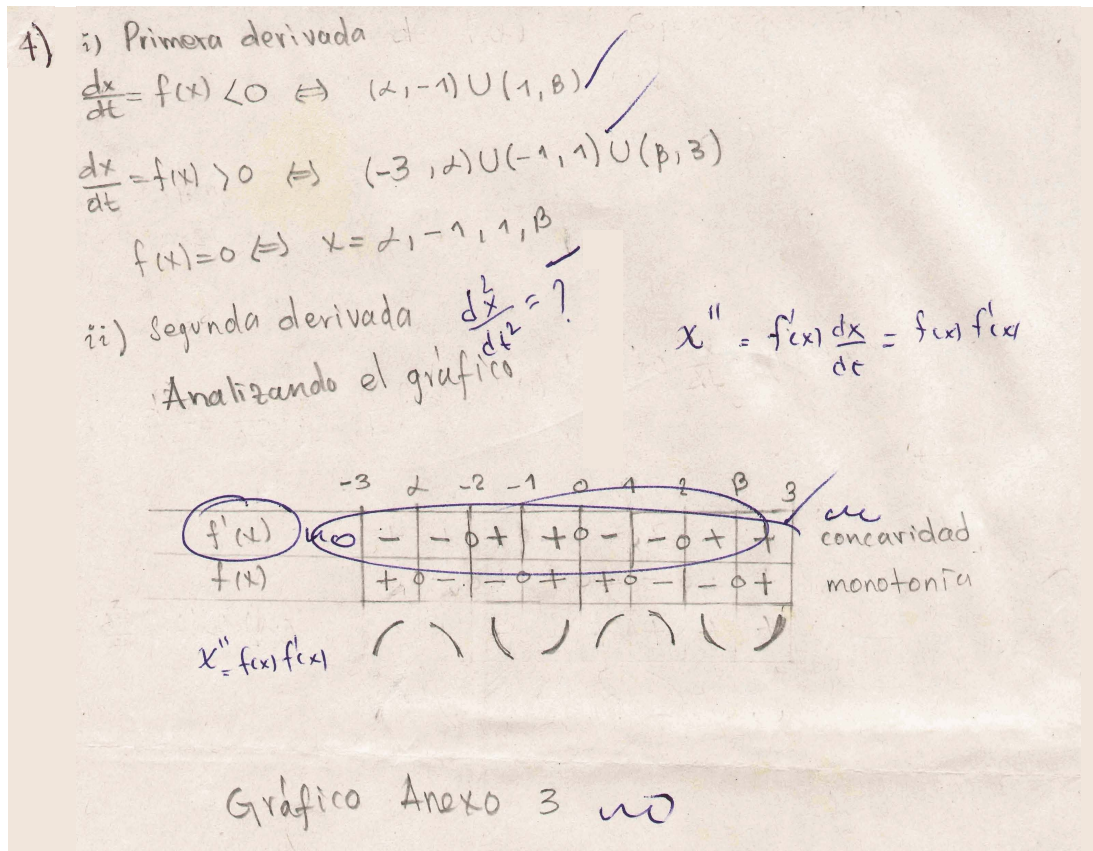 4) i) Primera derivada
dx/dt = f(x) < 0 ⇔ (α, -1) ∪ (1, β)
dx/dt = f(x) > 0 ⇔ (-3, α) ∪ (-1, 1) ∪ (β, 3)
f(x) = 0 ⇔ x = α, -1, 1, β
ii) Segunda derivada d²x/dt² = ?
x'' = f'(x) dx/dt = f(x) f'(x)
Analizando el gráfico
-3 α -2 -1 0 1 2 β 3
f'(x) no - - 0 + + 0 - - 0 + + concavidad
f(x) + 0 - - 0 + + 0 - - 0 + monotonía
x'' = f(x) f'(x)
Gráfico Anexo 3 no